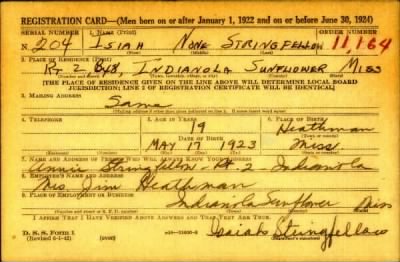 REGISTRATION CARD—(Men born on or after January 1, 1922 and on or before June 30, 1924)
SERIAL NUMBER 1. NAME (Print) ORDER NUMBER
204 ISIAH NONE STRINGFELLOW 11,164
(First) (Middle) (Last)
2. PLACE OF RESIDENCE (Print)
Rt 2 Bx8, INDIANOLA SUNFLOWER MISS
[THE PLACE OF RESIDENCE GIVEN ON THE LINE ABOVE WILL DETERMINE LOCAL BOARD
JURISDICTION; LINE 2 OF REGISTRATION CERTIFICATE WILL BE IDENTICAL]
3. MAILING ADDRESS
Same
4. TELEPHONE 5. AGE IN YEARS 6. PLACE OF BIRTH
19 Heathman
DATE OF BIRTH
MAY 17 1923 Miss
7. NAME AND ADDRESS OF PERSON WHO WILL ALWAYS KNOW YOUR ADDRESS
Annie Stringfellow - Rt-2 - Indianola
8. EMPLOYER'S NAME AND ADDRESS
Mrs. Jim Heathman
9. PLACE OF EMPLOYMENT OR BUSINESS
Indianola Sunflower Miss
I AFFIRM THAT I HAVE VERIFIED ABOVE ANSWERS AND THAT THEY ARE TRUE.
D. S. S. Form 1
(Revised 6-1-42)
Isaiah Stringfellow